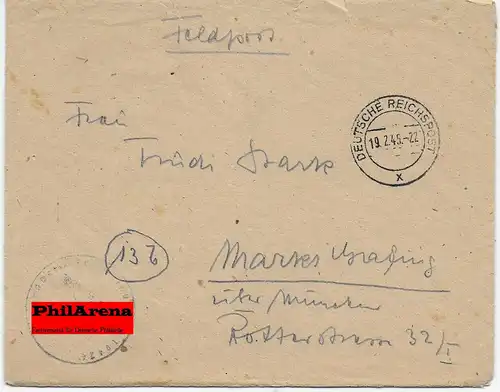 Feldpost
DEUTSCHE REICHSPOST
19.2.45.-22
x
Frau
Trudi Stark
13b
Markt Grafing
über München
Rotterstrasse 32/I
PhilArena
Fachversand für Deutsche Philatelie